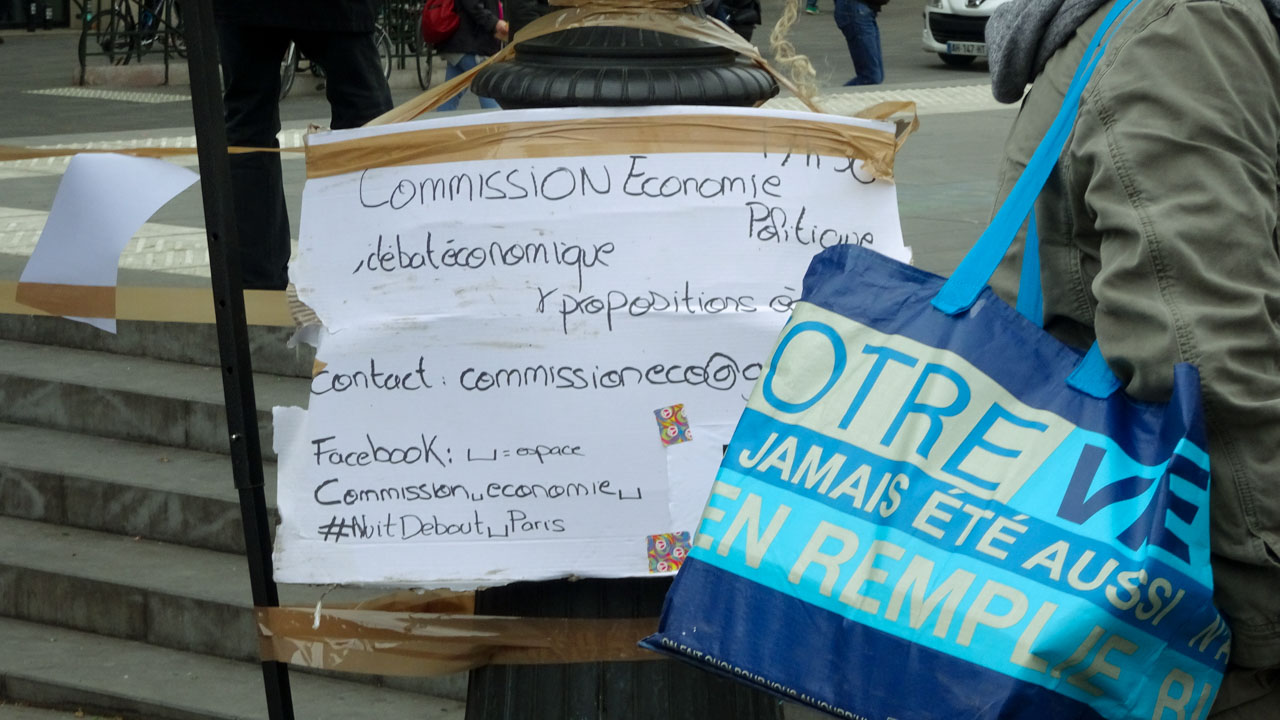 Commission Economie
Politique
, débat économique
propositions
contact : commissioneco@g
Facebook : ⎵ = espace
Commission⎵economie⎵
#NuitDebout⎵Paris
OTRE VE
JAMAIS ÉTÉ AUSSI
EN REMPLIE